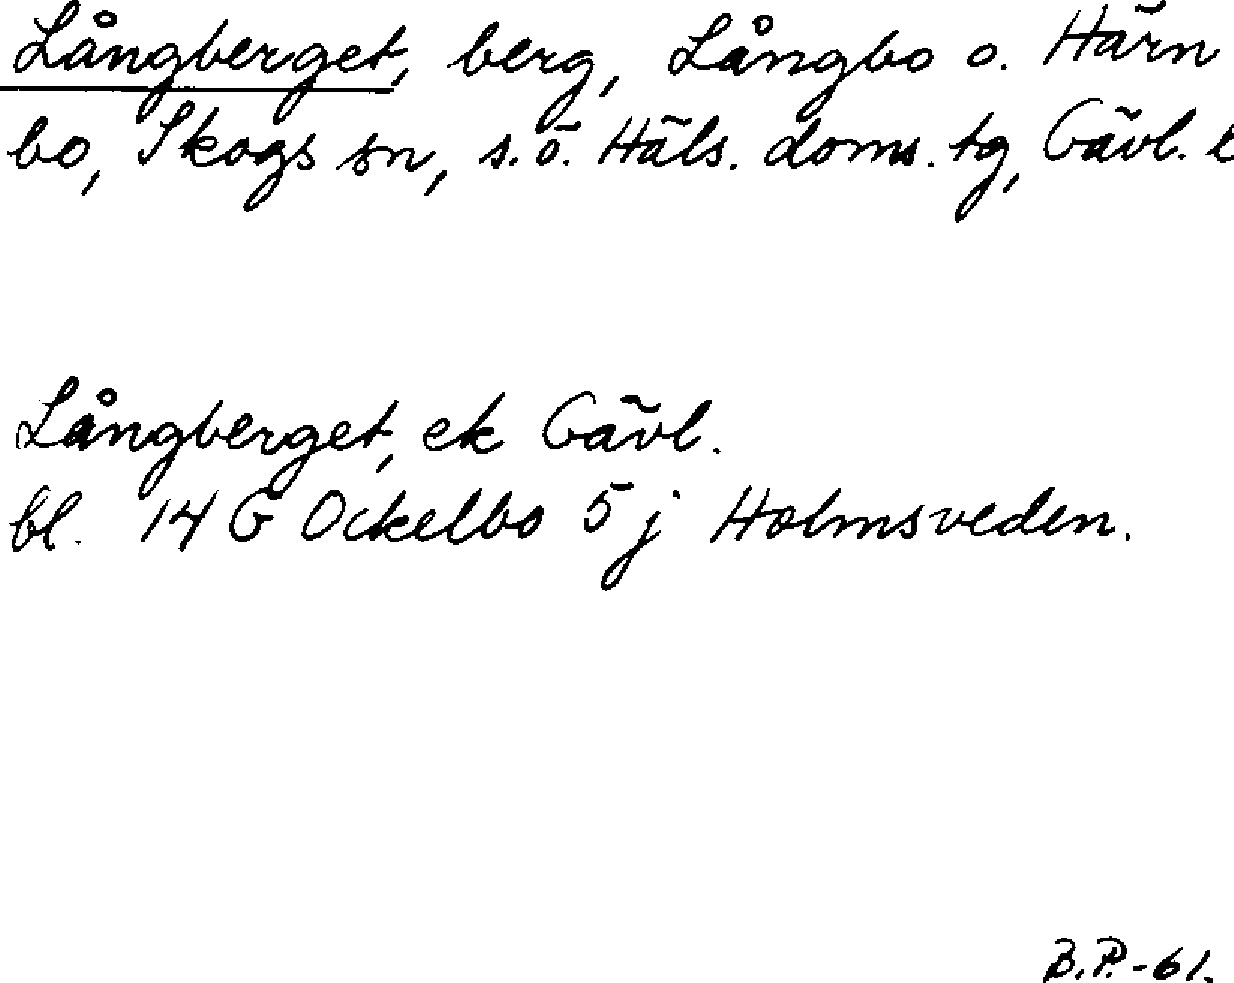 Långberget, berg, Långbo o. Härn
bo, Skogs sn, s.ö. Häls. doms. tg, Gävl. l
Långberget, ek Gävl.
bl. 14 G Ockelbo 5 j Holmsveden.
B.P.-61.